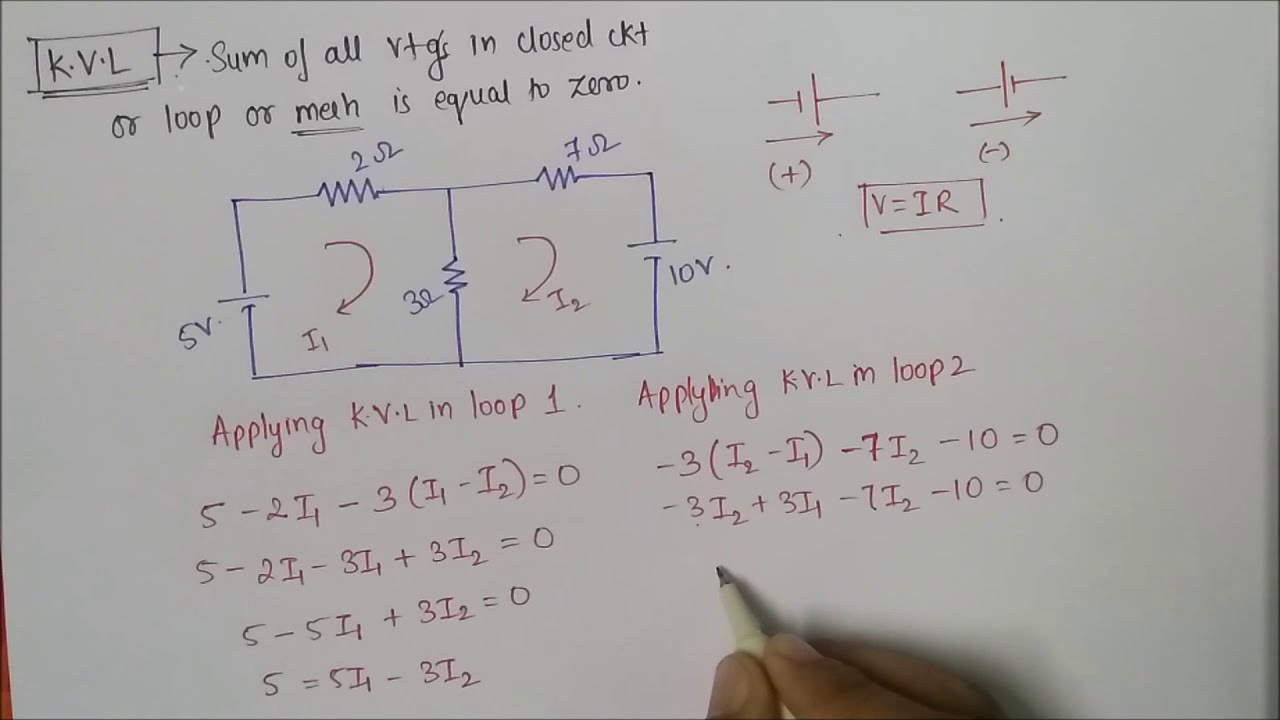 K.V.L → Sum of all vtg's in closed ckt
or loop or mesh is equal to zero.
(+)
(-)
V = IR
2Ω
7Ω
5V.
I₁
3Ω
I₂
10V.
Applying K.V.L in loop 1.
5 - 2I₁ - 3(I₁ - I₂) = 0
5 - 2I₁ - 3I₁ + 3I₂ = 0
5 - 5I₁ + 3I₂ = 0
5 = 5I₁ - 3I₂
Applying K.V.L in loop 2
-3(I₂ - I₁) - 7I₂ - 10 = 0
-3I₂ + 3I₁ - 7I₂ - 10 = 0